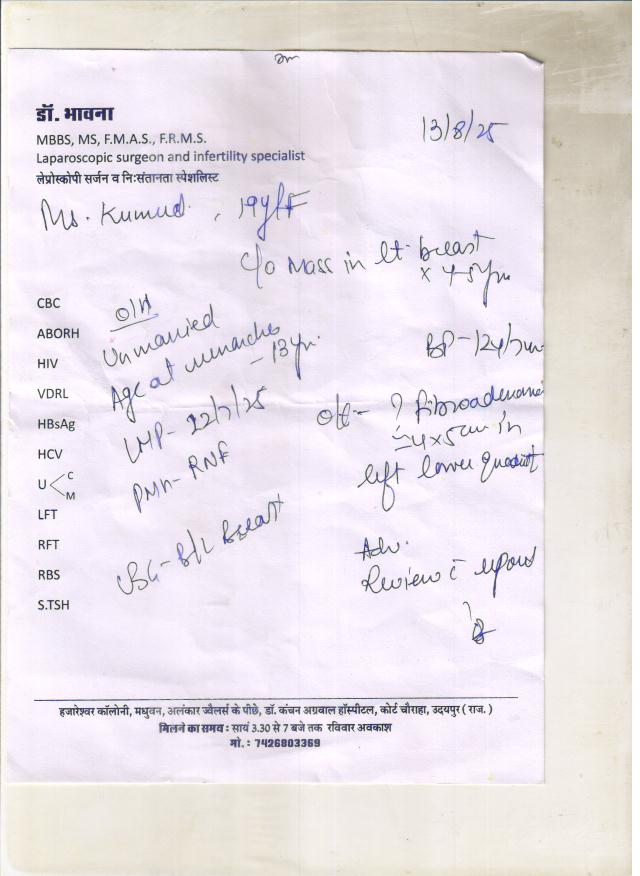 डॉ. भावना
MBBS, MS, F.M.A.S., F.R.M.S.
Laparoscopic surgeon and infertility specialist
लेप्रोस्कोपी सर्जन व निःसंतानता स्पेशलिस्ट
13/8/25
Ms. Kumud. , 19y/F
c/o Mass in lt. breast
x 4-5yr
CBC
ABORH
HIV
VDRL
HBsAg
HCV
U C
M
LFT
RFT
RBS
S.TSH
O/H
Unmarried
Age at menarche
- 13yr.
LMP- 22/7/25
PMH- RNF
USG- B/L Breast
BP-124/
O/E- ? fibroadenoma
≈4x5cm in
left lower quadrant
Adv.
Review c̄ report
हजारेश्वर कॉलोनी, मधुवन, अलंकार ज्वैलर्स के पीछे, डॉ. कंचन अग्रवाल हॉस्पीटल, कोर्ट चौराहा, उदयपुर ( राज. )
मिलने का समय : सायं 3.30 से 7 बजे तक रविवार अवकाश
मो. : 7426803369